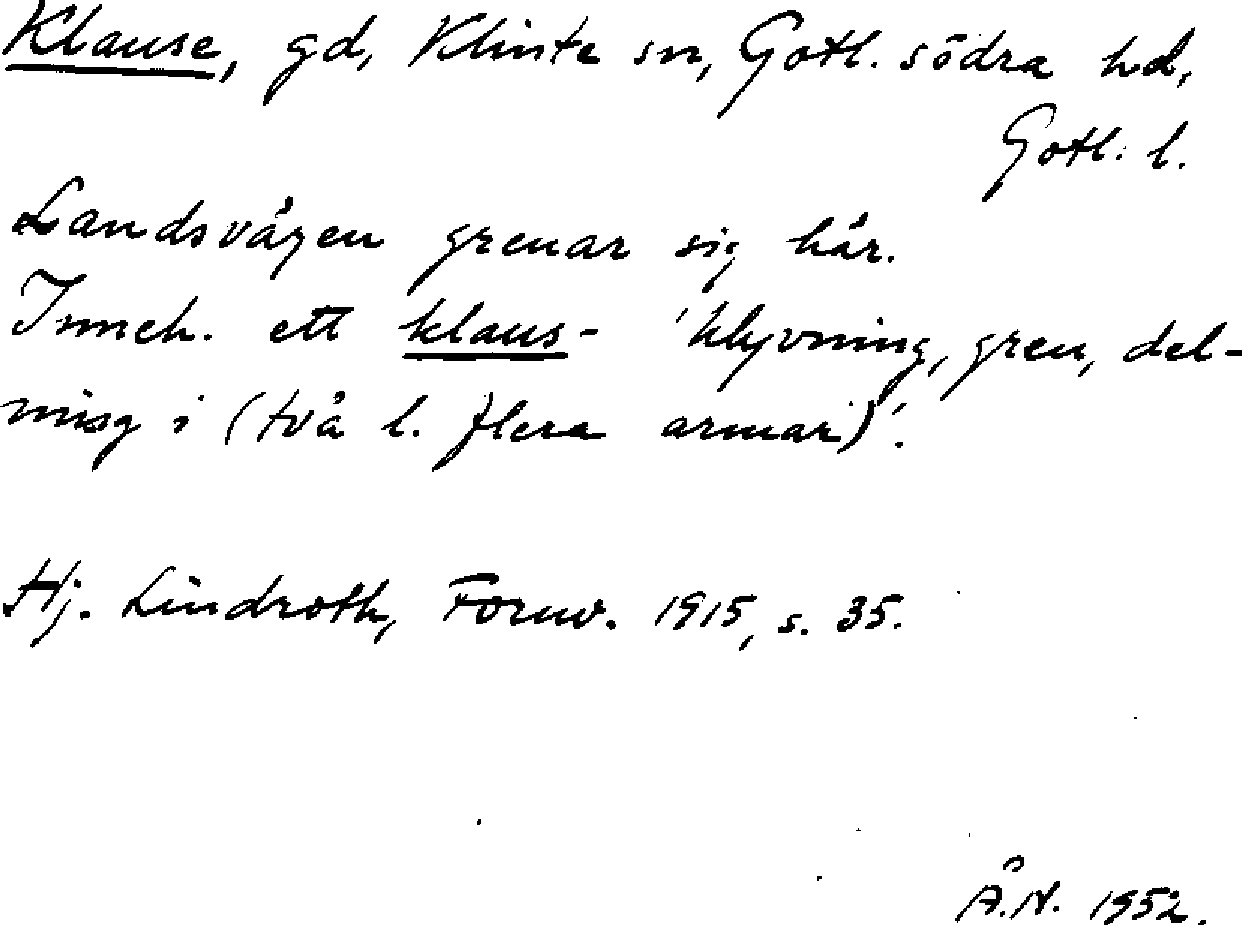 Klause, gd, Klinte sn, Gotl. södra hd,
Gotl. l.
Landsvägen grenar sig här.
Inneh. ett klaus- 'klyvning, gren, del-
ning i (två l. flera armar)'.
Hj. Lindroth, Fornv. 1915, s. 35.
Å.N. 1952.